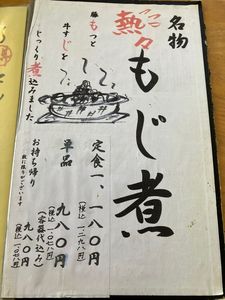 名物
熱々
もじ煮
豚もつと
牛すじを
じっくり煮込みました
定食 一、一八〇円
(税込 一二九八円)
単品 九八〇円
(税込 一〇七八円)
お持ち帰り 九八〇円
数に限りがございます
(容器代込み)
(税込 一〇七八円)